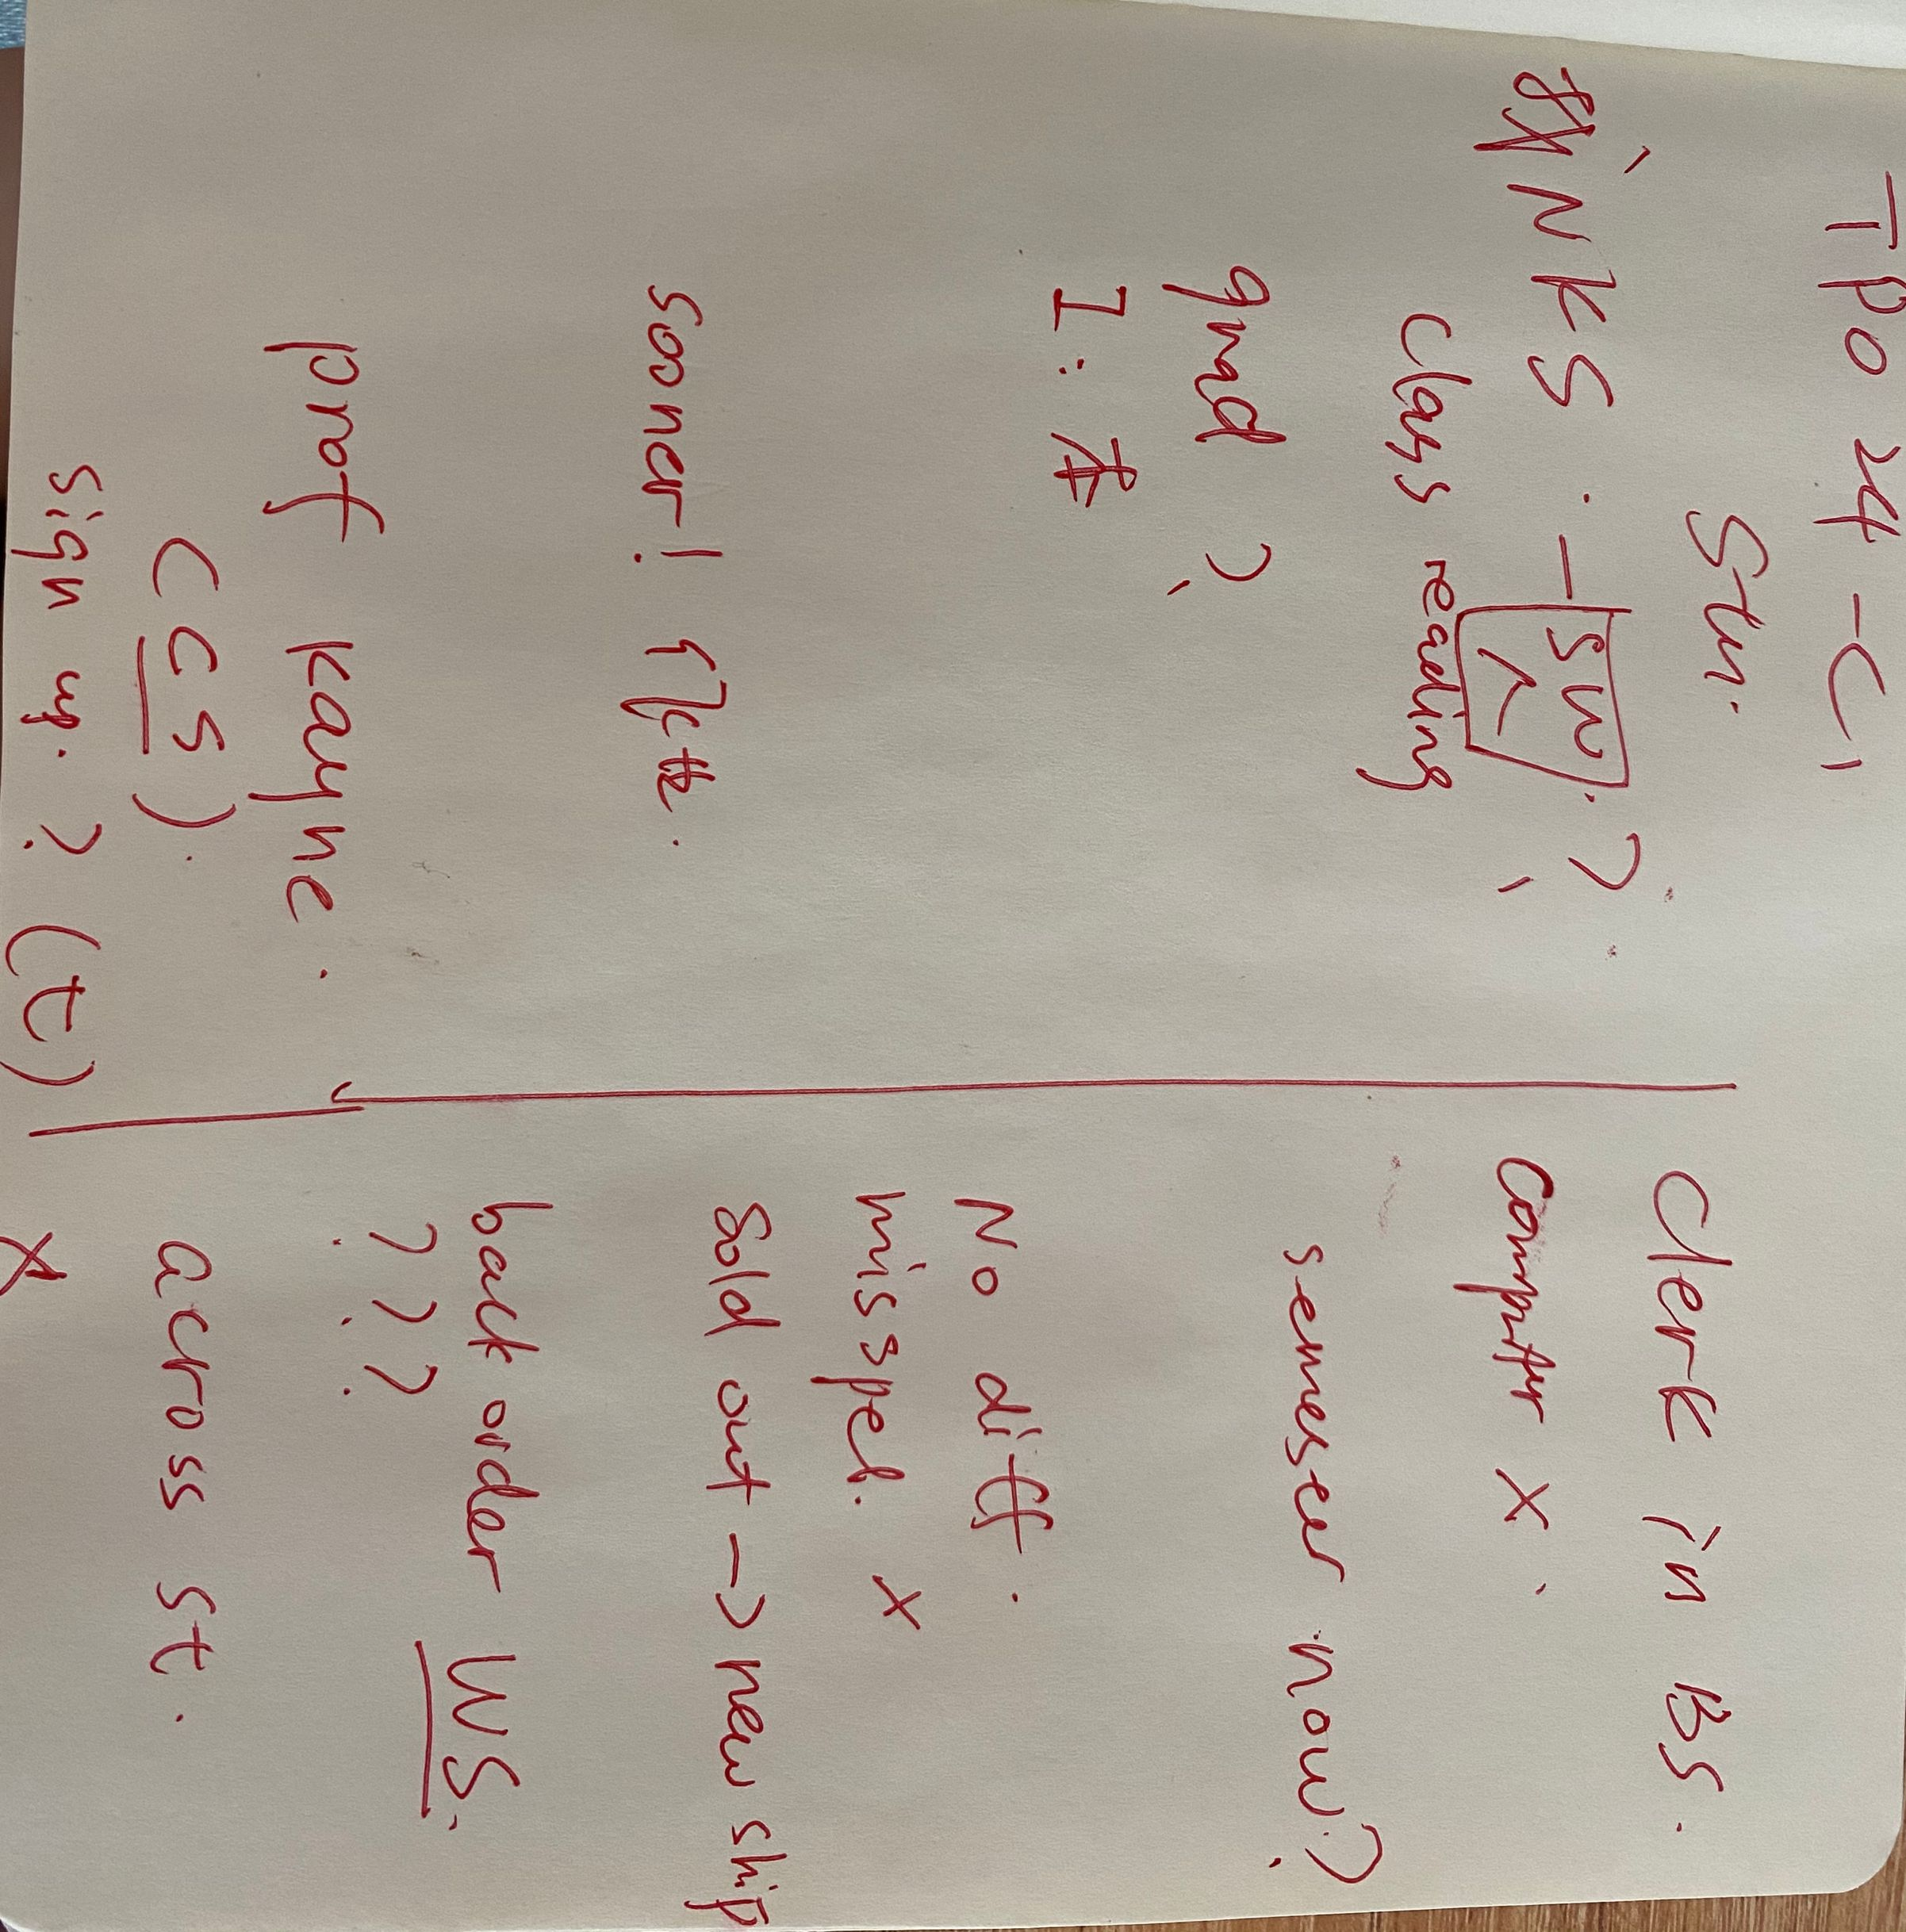 TPO 24 - C1
Stu.
NKS. - SW.?
人
class reading
grad ?
I: 在
sooner!
prof kayne.
(CCS).
sign up. ? (t)
Clerk in BS.
computer x.
semeser now?
No diff.
misspel. x
sold out → new ship
back order WS.
? ? ?
across st.
x